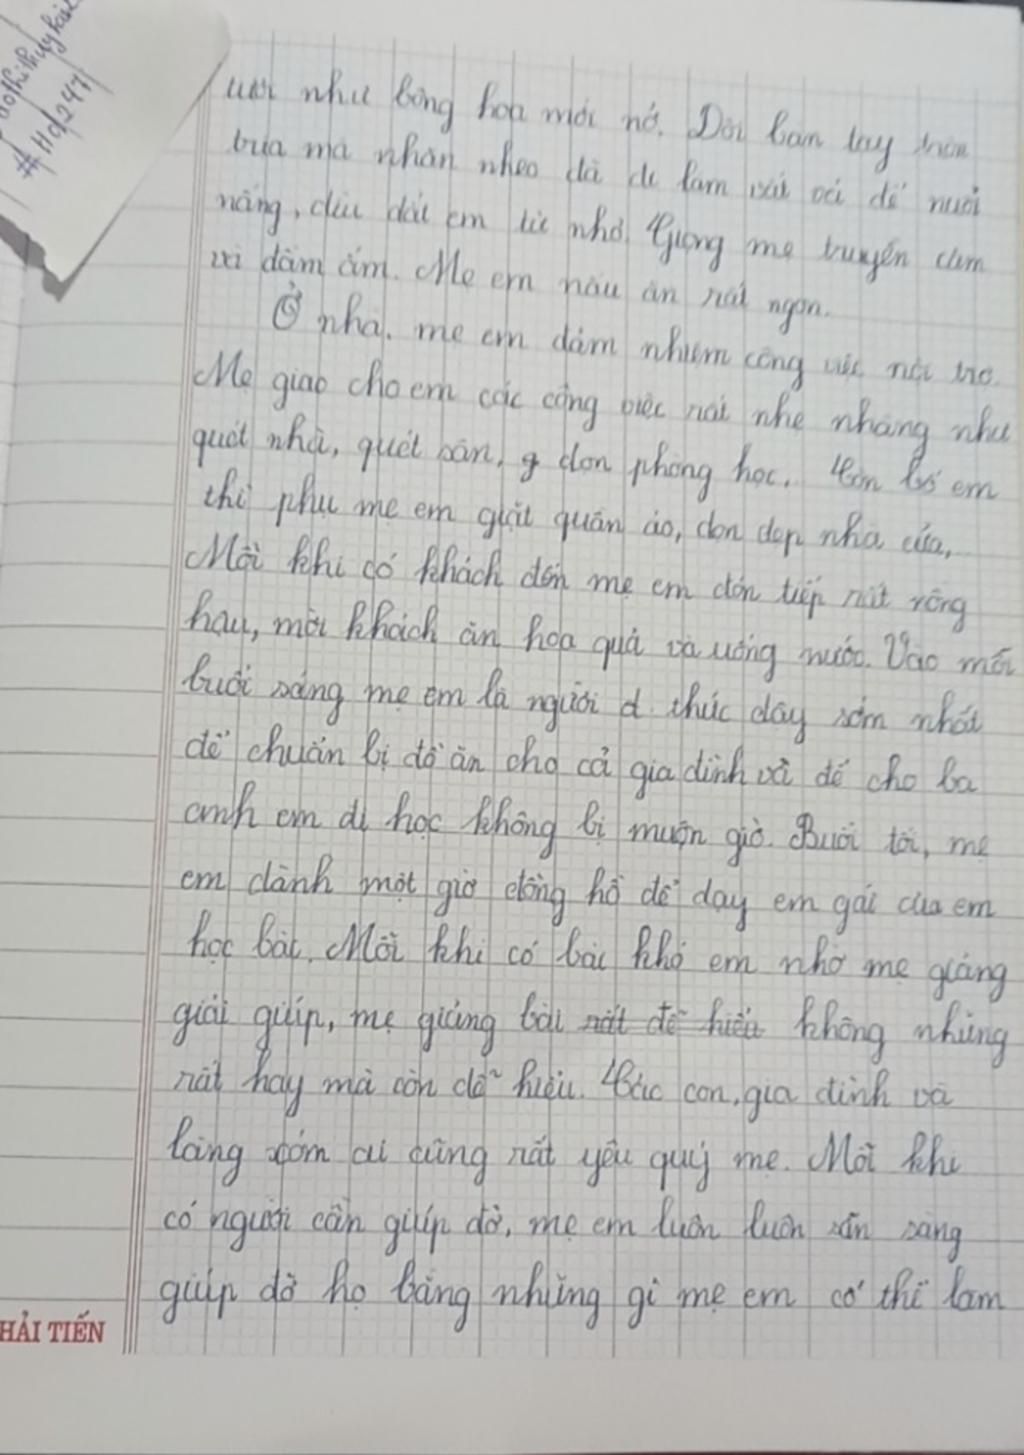 #Hd247
tươi như bông hoa mới nở. Đôi bàn tay
bùa mà nhăn nheo đã đi làm vất vả để nuôi
nấng, dìu dắt em từ nhỏ. Giọng mẹ truyền cảm
và đầm ấm. Mẹ em nấu ăn rất ngon.
Ở nhà, mẹ em đảm nhiệm công việc nội trợ.
Mẹ giao cho em các công việc rất nhẹ nhàng như
quét nhà, quét sân, g dọn phòng học. Còn bố em
thì phụ mẹ em giặt quần áo, dọn dẹp nhà cửa,..
Mỗi khi có khách đến mẹ em đón tiếp rất rộng
hau, mời khách ăn hoa quả và uống nước. Vào mỗi
buổi sáng mẹ em là người d thức dậy sớm nhất
để chuẩn bị đồ ăn cho cả gia đình và để cho ba
anh em đi học không bị muộn giờ. Buổi tối, mẹ
em dành một giờ đồng hồ để dạy em gái của em
học bài. Mỗi khi có bài khó em nhờ mẹ giảng
giải giúp, mẹ giảng bài rất dễ hiểu không những
rất hay mà còn dễ hiểu. Các con, gia đình và
làng xóm ai cũng rất yêu quý mẹ. Mỗi khi
có người cần giúp đỡ, mẹ em luôn luôn sẵn sàng
giúp đỡ họ bằng những gì mẹ em có thể làm
HẢI TIẾN